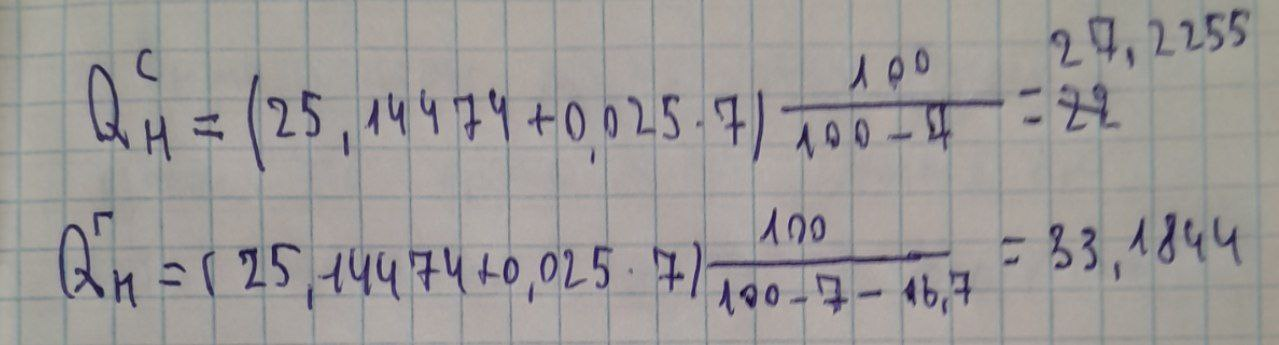 Q_н^с = (25,14474+0,025·7) 100/(100-7) = 27,2255
Q_н^г = (25,14474+0,025·7) 100/(100-7-16,7) = 33,1844